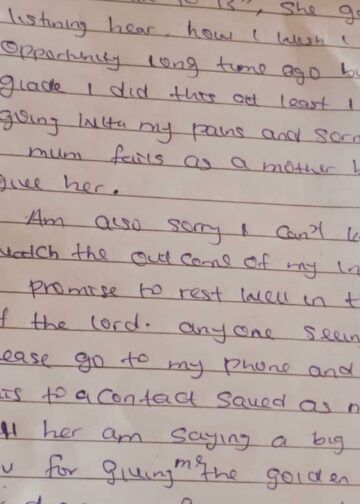 ", She go
listning hear, how I wish I
opportunity long time ago b
glade I did this att least I
going with my pains and sorr
mum fails as a mother
give her.
Am also sorry I can't
watch the out come of my in
promise to rest well in t
f the lord. anyone seein
ease go to my phone and
is to a contact saved as n
her am saying a big
u for giving me the golden